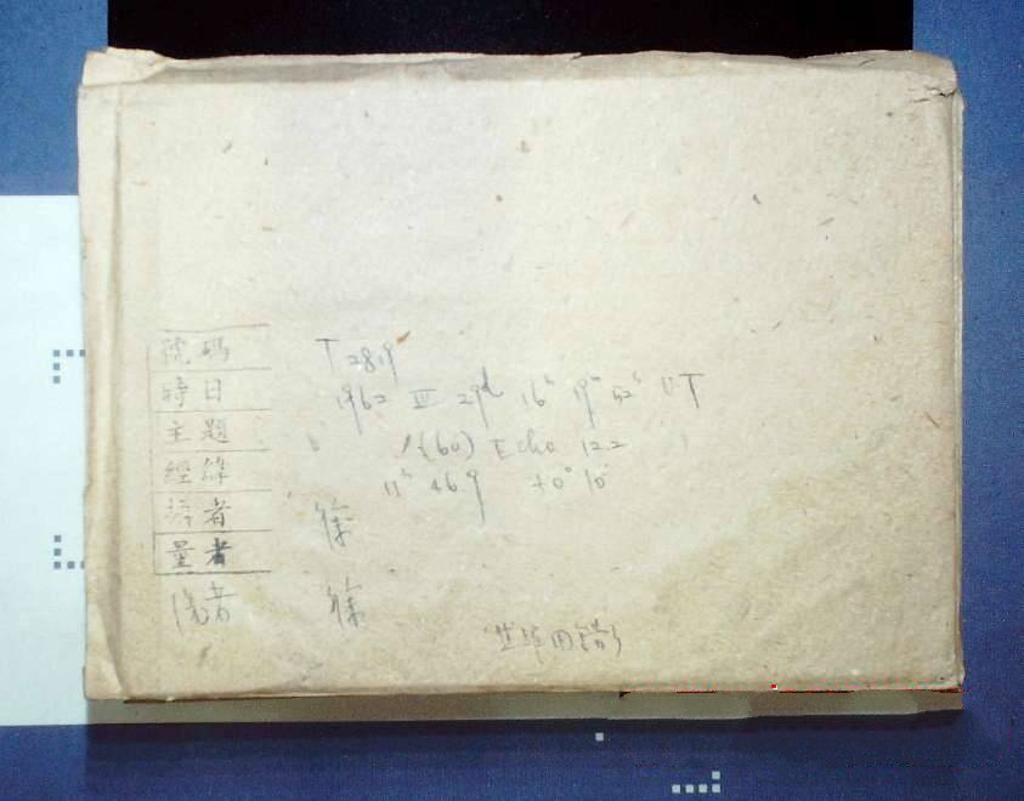 號碼 T 2819
時日 1962 III 29d 16h 19m 52s UT
主題 (60) Echo 12.2
經緯 11h 46.9 +0° 10'
者 徐
量者
者 徐